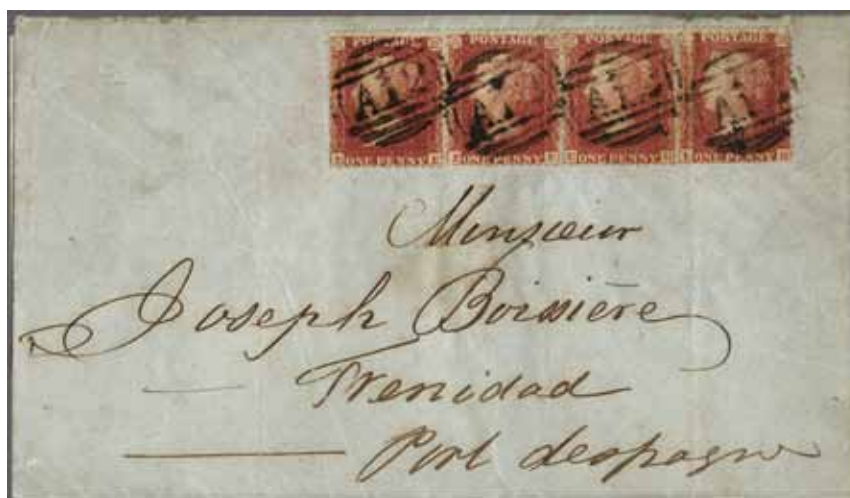 POSTAGE POSTAGE POSTAGE POSTAGE
A12 A1 A12 A1
ONE PENNY ONE PENNY ONE PENNY ONE PENNY
Monsieur
Joseph Boissière
Trenidad
Port despagne